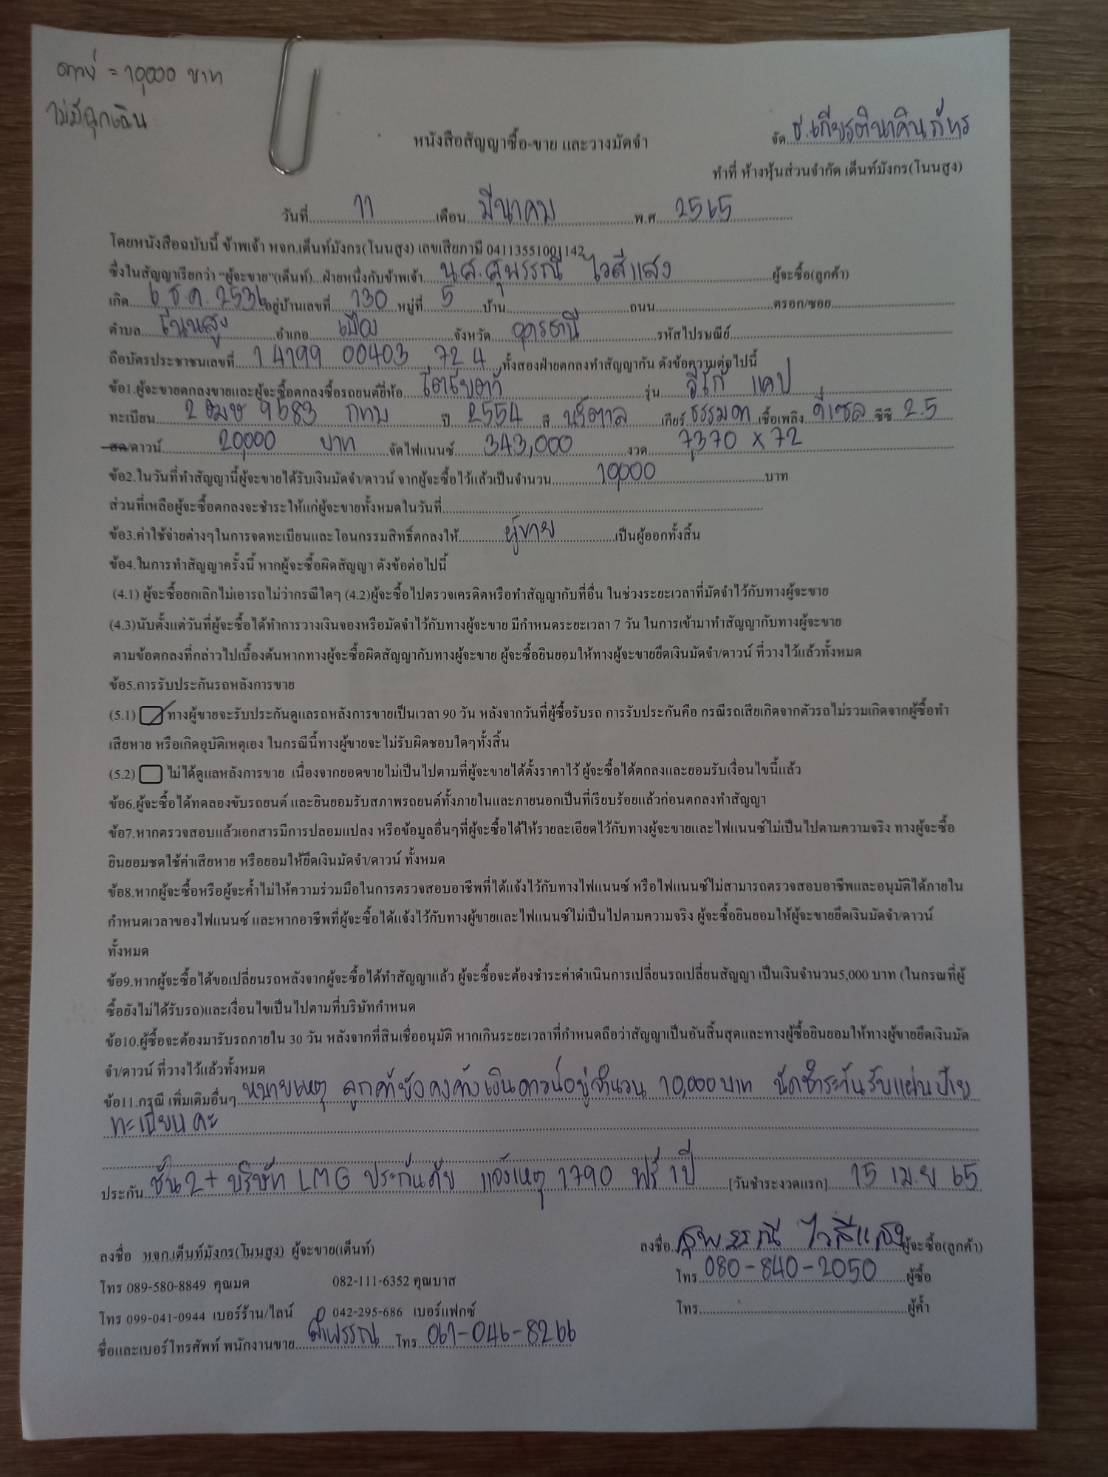 ดาวน์ = 10,000 บาท
ไม่มีฉุกเฉิน
จัด ธ.เกียรตินาคินภัทร
หนังสือสัญญาซื้อ-ขาย และวางมัดจำ
ทำที่ ห้างหุ้นส่วนจำกัด เต็นท์มังกร(โนนสูง)
วันที่ 11 เดือน มีนาคม พ.ศ 2565
โดยหนังสือฉบับนี้ ข้าพเจ้า หจก.เต็นท์มังกร(โนนสูง) เลขเสียภามี 04113551001142
ซึ่งในสัญญาเรียกว่า "ผู้จะขาย"(เต็นท์)...ฝ่ายหนึ่งกับข้าพเจ้า น.ส.สุพรรณี ไวสีแสง ผู้จะซื้อ(ลูกค้า)
เกิด 6 ธ.ค. 2536 อยู่บ้านเลขที่ 130 หมู่ที่ 5 บ้าน ถนน ตรอก/ซอย
ตำบล โนนสูง อำเภอ เมือง จังหวัด อุดรธานี รหัสไปรษณีย์
ถือบัตรประชาชนเลขที่ 1 4199 00403 72 4 ทั้งสองฝ่ายตกลงทำสัญญากัน ดังข้อความต่อไปนี้
ข้อ1.ผู้จะขายตกลงขายและผู้จะซื้อตกลงซื้อรถยนต์ยี่ห้อ โตโยต้า รุ่น วีโก้ แคป
ทะเบียน 2 ฒษ 9683 กทม ปี 2554 สี น้ำตาล เกียร์ ธรรมดา เชื้อเพลิง ดีเซล ซีซี 2.5
สด/ดาวน์ 20,000 บาท จัดไฟแนนซ์ 343,000 งวด 7,370 x 72
ข้อ2.ในวันที่ทำสัญญานี้ผู้จะขายได้รับเงินมัดจำ/ดาวน์ จากผู้จะซื้อไว้แล้วเป็นจำนวน 10,000 บาท
ส่วนที่เหลือผู้จะซื้อตกลงจะชำระให้แก่ผู้จะขายทั้งหมดในวันที่
ข้อ3.ค่าใช้จ่ายต่างๆในการจดทะเบียนและโอนกรรมสิทธิ์ตกลงให้ ผู้ขาย เป็นผู้ออกทั้งสิ้น
ข้อ4.ในการทำสัญญาครั้งนี้ หากผู้จะซื้อผิดสัญญา ดังข้อต่อไปนี้
(4.1) ผู้จะซื้อยกเลิกไม่เอารถไม่ว่ากรณีใดๆ (4.2)ผู้จะซื้อไปตรวจเครดิตหรือทำสัญญากับที่อื่น ในช่วงระยะเวลาที่มัดจำไว้กับทางผู้จะขาย
(4.3)นับตั้งแต่วันที่ผู้จะซื้อได้ทำการวางเงินจองหรือมัดจำไว้กับทางผู้จะขาย มีกำหนดระยะเวลา 7 วัน ในการเข้ามาทำสัญญากับทางผู้จะขาย
ตามข้อตกลงที่กล่าวไปเบื้องต้นหากทางผู้จะซื้อผิดสัญญากับทางผู้จะขาย ผู้จะซื้อยินยอมให้ทางผู้จะขายยึดเงินมัดจำ/ดาวน์ ที่วางไว้แล้วทั้งหมด
ข้อ5.การรับประกันรถหลังการขาย
(5.1) ทางผู้ขายจะรับประกันดูแลรถหลังการขายเป็นเวลา 90 วัน หลังจากวันที่ผู้ซื้อรับรถ การรับประกันคือ กรณีรถเสียเกิดจากตัวรถไม่รวมเกิดจากผู้ซื้อทำ
เสียหาย หรือเกิดอุบัติเหตุเอง ในกรณีนี้ทางผู้ขายจะไม่รับผิดชอบใดๆทั้งสิ้น
(5.2) ไม่ได้ดูแลหลังการขาย เนื่องจากยอดขายไม่เป็นไปตามที่ผู้จะขายได้ตั้งราคาไว้ ผู้จะซื้อได้ตกลงและยอมรับเงื่อนไขนี้แล้ว
ข้อ6.ผู้จะซื้อได้ทดลองขับรถยนต์ และยินยอมรับสภาพรถยนต์ทั้งภายในและภายนอกเป็นที่เรียบร้อยแล้วก่อนตกลงทำสัญญา
ข้อ7.หากตรวจสอบแล้วเอกสารมีการปลอมแปลง หรือข้อมูลอื่นๆที่ผู้จะซื้อได้ให้รายละเอียดไว้กับทางผู้จะขายและไฟแนนซ์ไม่เป็นไปตามความจริง ทางผู้จะซื้อ
ยินยอมชดใช้ค่าเสียหาย หรือยอมให้ยึดเงินมัดจำ/ดาวน์ ทั้งหมด
ข้อ8.หากผู้จะซื้อหรือผู้จะค้ำไม่ให้ความร่วมมือในการตรวจสอบอาชีพที่ได้แจ้งไว้กับทางไฟแนนซ์ หรือไฟแนนซ์ไม่สามารถตรวจสอบอาชีพและอนุมัติได้ภายใน
กำหนดเวลาของไฟแนนซ์ และหากอาชีพที่ผู้จะซื้อได้แจ้งไว้กับทางผู้ขายและไฟแนนซ์ไม่เป็นไปตามความจริง ผู้จะซื้อยินยอมให้ผู้จะขายยึดเงินมัดจำ/ดาวน์
ทั้งหมด
ข้อ9.หากผู้จะซื้อได้ขอเปลี่ยนรถหลังจากผู้จะซื้อได้ทำสัญญาแล้ว ผู้จะซื้อจะต้องชำระค่าดำเนินการเปลี่ยนรถเปลี่ยนสัญญา เป็นเงินจำนวน5,000 บาท (ในกรณที่ผู้
ซื้อยังไม่ได้รับรถ)และเงื่อนไขเป็นไปตามที่บริษัทกำหนด
ข้อ10.ผู้ซื้อจะต้องมารับรถภายใน 30 วัน หลังจากที่สินเชื่ออนุมัติ หากเกินระยะเวลาที่กำหนดถือว่าสัญญาเป็นอันสิ้นสุดและทางผู้ซื้อยินยอมให้ทางผู้ขายยึดเงินมัด
จำ/ดาวน์ ที่วางไว้แล้วทั้งหมด
ข้อ11.กรณี เพิ่มเติมอื่นๆ หมายเหตุ ลูกค้ายังคงค้างเงินดาวน์อยู่จำนวน 10,000 บาท นัดชำระวันรับแผ่นป้าย
ทะเบียนคะ
ประกัน ชั้น 2+ บริษัท LMG ประกันภัย แจ้งเหตุ 1790 ฟรี 1 ปี (วันชำระงวดแรก) 15 เม.ย 65
ลงชื่อ หจก.เต็นท์มังกร(โนนสูง) ผู้จะขาย(เต็นท์) ลงชื่อ สุพรรณี ไวสีแสง ผู้จะซื้อ(ลูกค้า)
โทร 089-580-8849 คุณมด 082-111-6352 คุณบาส โทร 080-840-2050 ผู้ซื้อ
โทร 099-041-0944 เบอร์ร้าน/ไลน์ 042-295-686 เบอร์แฟกซ์ โทร ผู้ค้ำ
ชื่อและเบอร์โทรศัพท์ พนักงานขาย โทร 061-046-8266